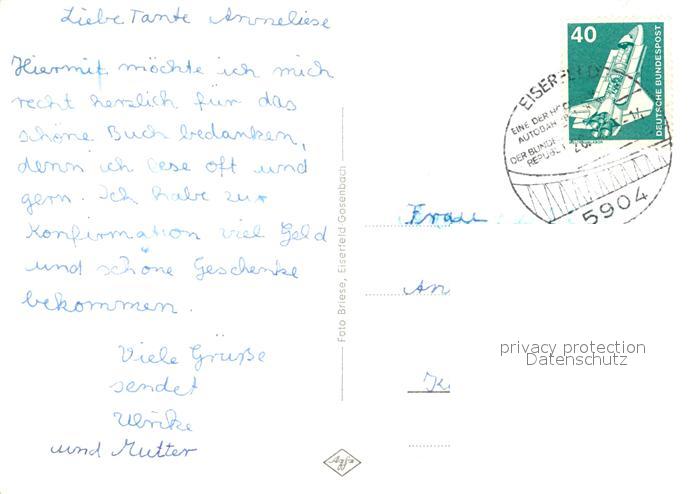 Liebe Tante Anneliese
Hiermit möchte ich mich
recht herzlich für das
schöne Buch bedanken,
denn ich lese oft und
gern. Ich habe zur
Konfirmation viel Geld
und schöne Geschenke
bekommen.
Viele Grüße
sendet
Ulrike
und Mutter
Foto Briese, Eiserfeld-Gosenbach
Agfa
40
DEUTSCHE BUNDESPOST
EISERFELD
EINE DER
AUTOBAH
DER BUNDES
REPUBL
5904
Frau
An
K
privacy protection
Datenschutz